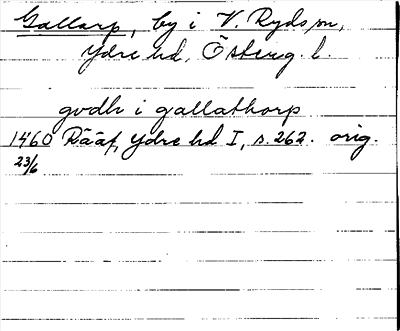 Gallarp, by i V. Ryds sn,
Ydre hd, Österg. l.
gvdh i gallathorp
1460 Rääf, Ydre hd I, s. 262. orig.
23/6